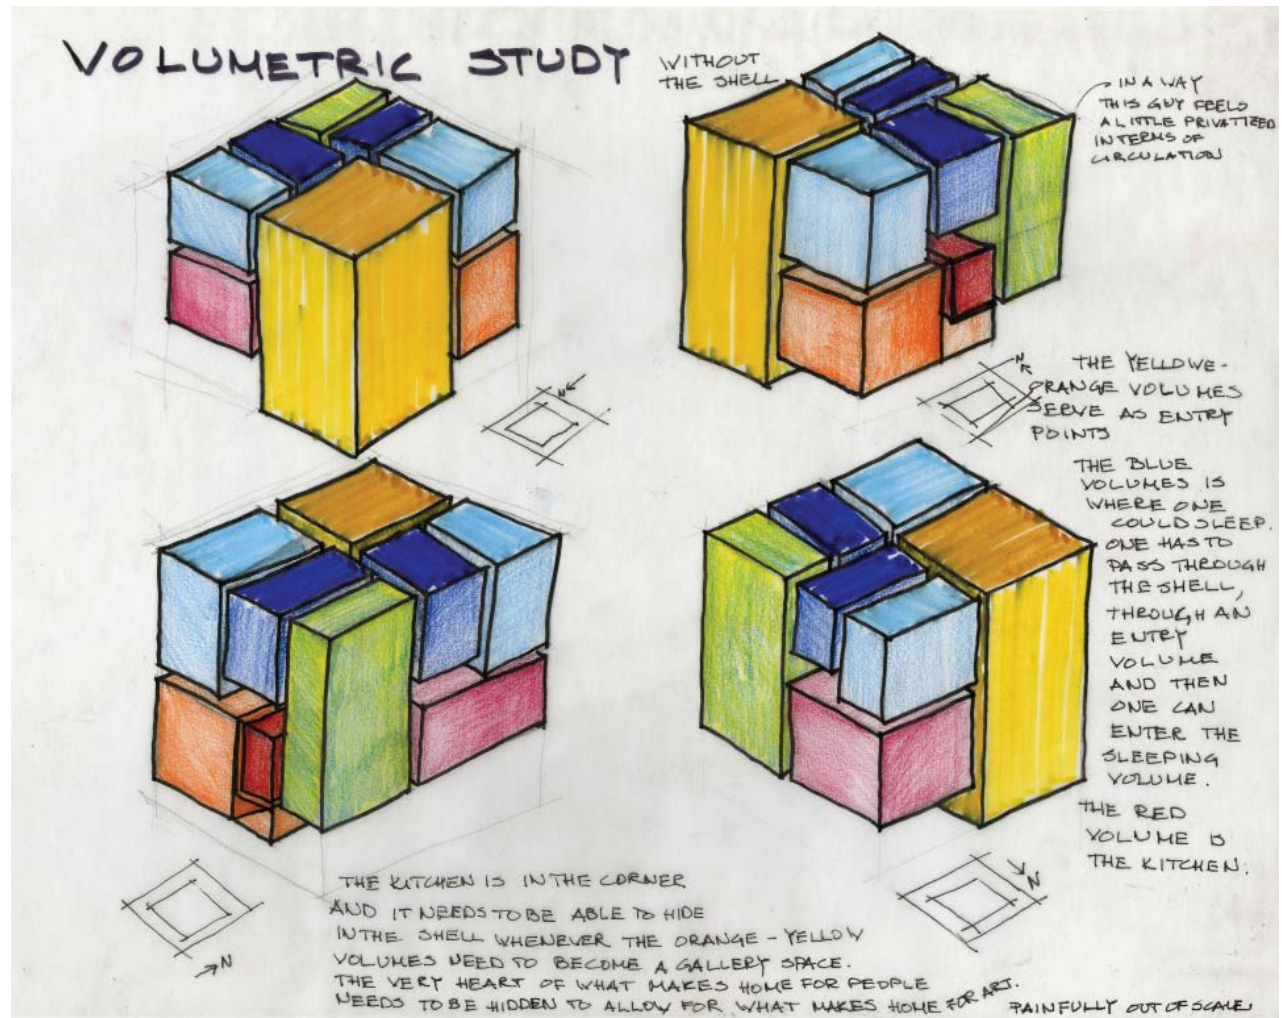 VOLUMETRIC STUDY
WITHOUT
THE SHELL
IN A WAY
THIS GUY FEELS
A LITTLE PRIVATIZED
IN TERMS OF
CIRCULATION
N
N
THE YELLOWE-
ORANGE VOLUMES
SERVE AS ENTRY
POINTS
THE BLUE
VOLUMES IS
WHERE ONE
COULD SLEEP.
ONE HAS TO
PASS THROUGH
THE SHELL,
THROUGH AN
ENTRY
VOLUME
AND THEN
ONE CAN
ENTER THE
SLEEPING
VOLUME.
THE RED
VOLUME IS
THE KITCHEN.
N
N
THE KITCHEN IS IN THE CORNER
AND IT NEEDS TO BE ABLE TO HIDE
IN THE SHELL WHENEVER THE ORANGE - YELLOW
VOLUMES NEED TO BECOME A GALLERY SPACE.
THE VERY HEART OF WHAT MAKES HOME FOR PEOPLE
NEEDS TO BE HIDDEN TO ALLOW FOR WHAT MAKES HOME FOR ART.
PAINFULLY OUT OF SCALE